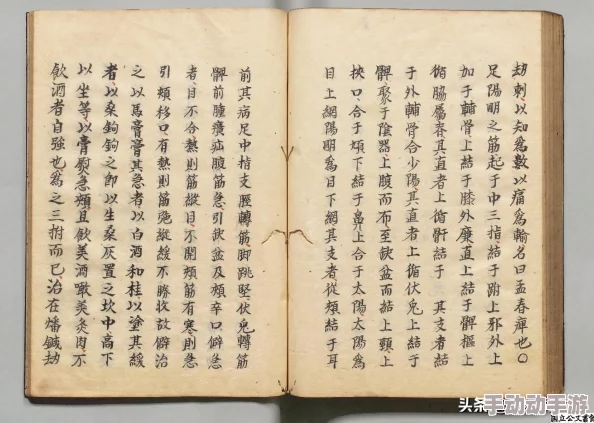 劫刺以知爲數以痛爲輸名曰孟春痺也〇
足陽明之筋起于中三指結于跗上邪外上
加于輔骨上結于膝外廉直上結于髀樞上
循脇屬脊其直者上循骭結于 其支者結
于外輔骨合少陽其直者上循伏兔上結于
髀聚于陰器上腹而布至缺盆而結上頸上
挾口合于頄下結于鼻上合于太陽太陽爲
目上網陽明爲目下網其支者從頰結于耳
前其病足中指支脛轉筋脚跳堅伏兔轉筋
髀前腫㿉疝腹筋急引缺盆及頰卒口僻急
者目不合熱則筋縱目不開頰筋有寒則急
引頰移口有熱則筋弛縱緩不勝收故僻治
之以馬膏膏其急者以白酒和桂以塗其緩
者以桑鉤鉤之即以生桑灰置之坎中高下
以坐等以膏熨急頰且飲美酒噉美炙肉不
飲酒者自強也爲之三拊而已治在燔鍼劫
头条
手动动手游
国立公文書